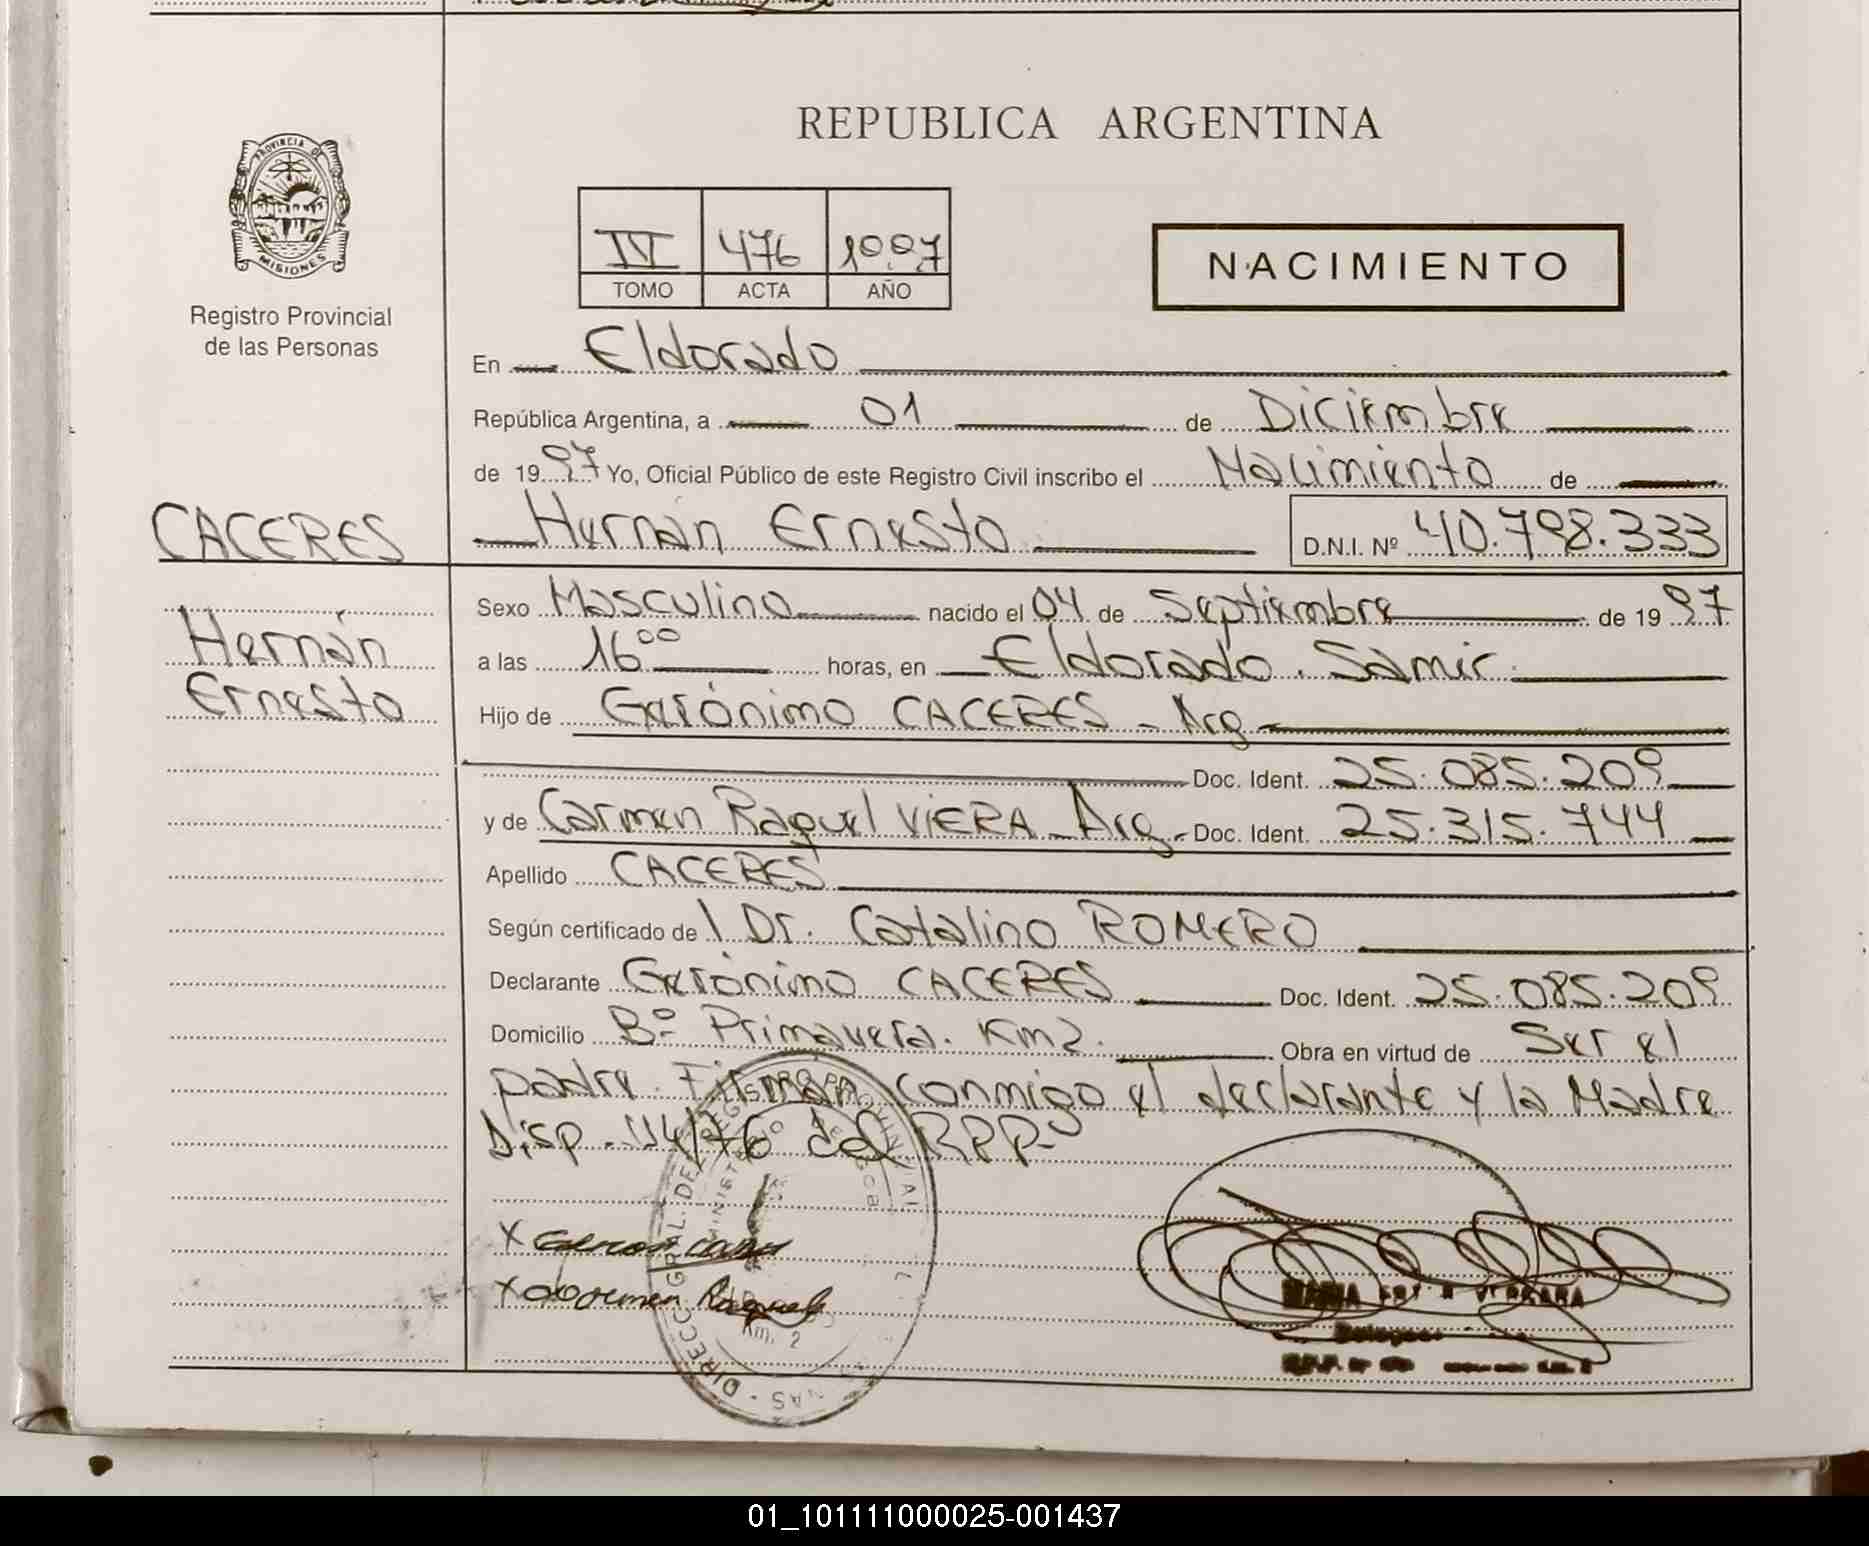 REPUBLICA ARGENTINA
PROVINCIA DE
MISIONES
Registro Provincial
de las Personas
IV 476 1997
TOMO ACTA AÑO
NACIMIENTO
En Eldorado
República Argentina, a 01 de Diciembre
de 1997 Yo, Oficial Público de este Registro Civil inscribo el Nacimiento de
CACERES
Hernán Ernesto D.N.I. Nº 40.798.333
Hernán
Ernesto
Sexo Masculino nacido el 04 de Septiembre de 1997
a las 16°° horas, en Eldorado. Samic.
Hijo de Gerónimo CACERES - Arg.
Doc. Ident. 25.085.209
y de Carmen Raquel VIERA - Arg. Doc. Ident. 25.315.744
Apellido CACERES
Según certificado de l Dr. Catalino ROMERO
Declarante Gerónimo CACERES Doc. Ident. 25.085.209
Domicilio Bº Primavera. Km 2. Obra en virtud de Ser el
padre. Firman conmigo el declarante y la Madre
Disp. 44/76 del RPP-
X
X Carmen Raquel
Km. 2
MARIA VERGARA
01_101111000025-001437